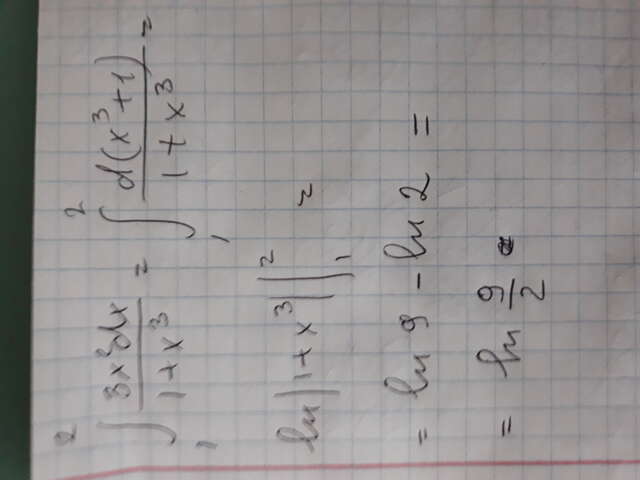 ∫₁² 3x²dx / 1+x³ = ∫₁² d(x³+1) / 1+x³ =
ln|1+x³| |₁² =
= ln 9 - ln 2 =
= ln 9/2